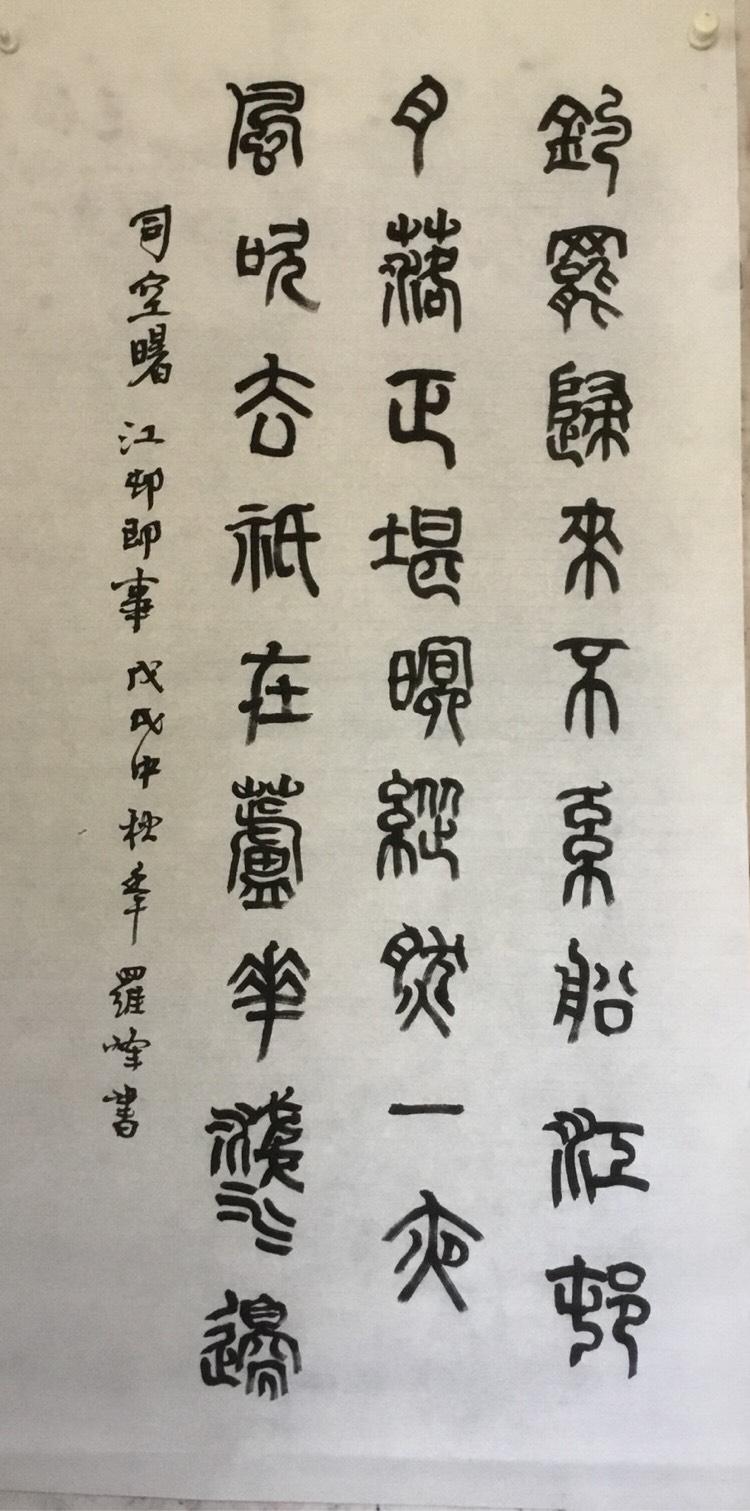 釣罷歸來不系船江邨
月落正堪眠縱然一夜
風吹去祇在蘆花淺水邊
司空曙江邨即事戊戌中秋季羅峰書